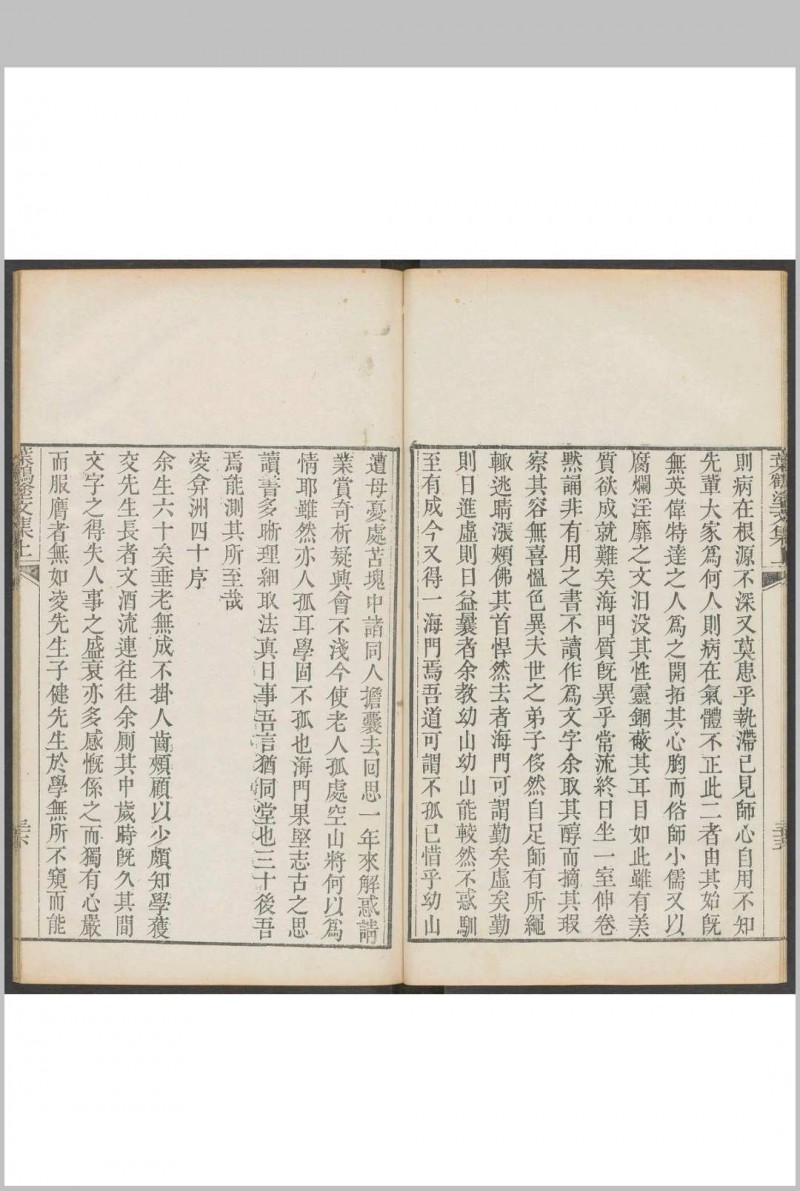 則病在根源不深又莫患乎執滯己見師心自用不知
先輩大家爲何人則病在氣體不正此二者由其始旣
無英偉特達之人爲之開拓其心胸而俗師小儒又以
腐爛淫靡之文汨没其性靈錮蔽其耳目如此雖有美
質欲成就難矣海門質旣異乎常流終日坐一室伸卷
默誦非有用之書不讀作爲文字余取其醇而摘其瑕
察其容無喜慍色異夫世之弟子侈然自足師有所繩
輒逃睛漲頰佛其首悍然去者海門可謂勤矣虛矣勤
則日進虛則日益曩者余教幼山幼山能較然不惑馴
至有成今又得一海門焉吾道可謂不孤已惜乎幼山
遭母憂處苫塊中諸同人擔囊去回思一年來解惑請
業賞奇析疑興會不淺今使老人孤處空山將何以爲
情耶雖然亦人孤耳學固不孤也海門果堅志古之思
讀書多晰理細取法真日事吾言猶同堂也三十後吾
焉能測其所至哉
凌弇洲四十序
余生六十矣垂老無成不掛人齒頰顧以少頗知學獲
交先生長者文酒流連往往余厠其中歲時旣久其間
文字之得失人事之盛衰亦多感慨係之而獨有心嚴
而服膺者無如凌先生子健先生於學無所不窺而能
文集上